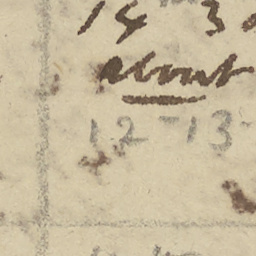 14 3
about
12-13-